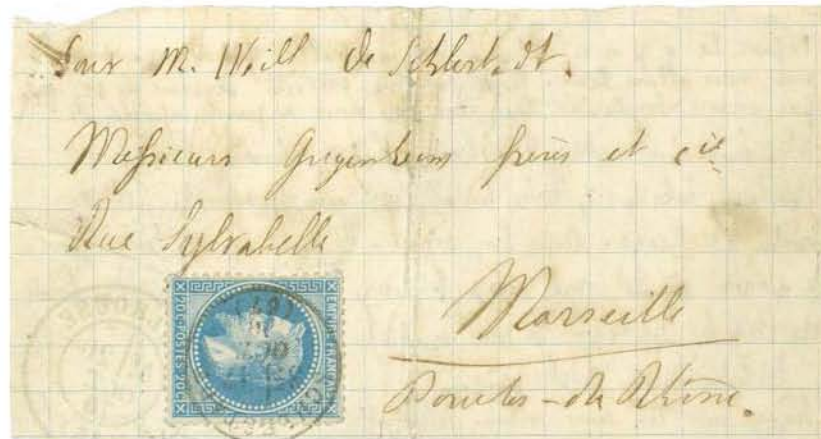 Pour M. Weill de Schlestadt.
Messieurs Gugenheim frères et Cie
Rue Sylvabelle
Marseille
Bouches-du Rhône.
EMPIRE FRANÇAIS
20C POSTES 20C
(67)